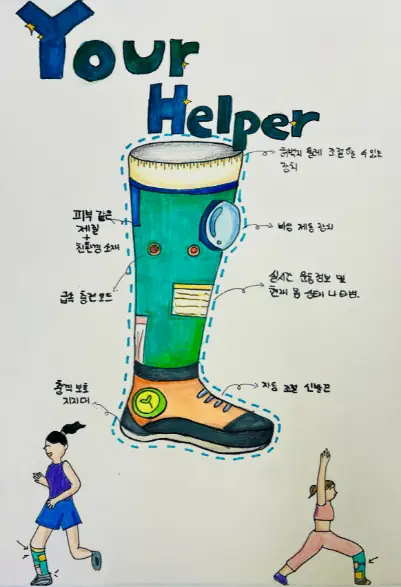 Your
Helper
허벅지 둘레 조절할 수 있는
장치
피부 같은
재질
+
친환경 소재
비상 제동 장치
급속 충전 모드
실시간 운동 정보 및
현재 몸 상태 나타냄.
충격 보호
지지대
자동 조절 신발끈